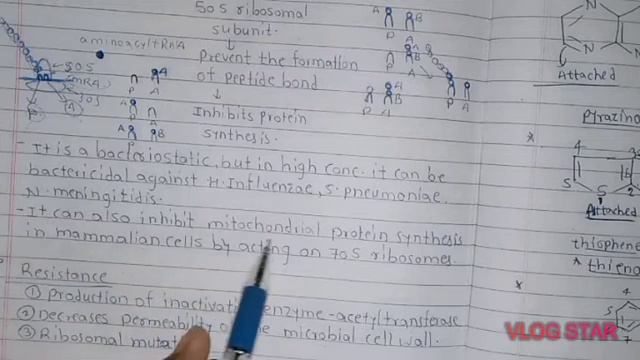 50 S ribosomal
subunit.
aminoacyl tRNA
Prevent the formation
of peptide bond
50S
mRNA
30S
P A
Inhibits protein
synthesis.
- It is a bacteriostatic, but in high conc. it can be
bactericidal against H. Influenzae, S. pneumoniae,
N. meningitidis.
- It can also inhibit mitochondrial protein synthesis
in mammalian cells by acting on 70S ribosomes.
Resistance
① Production of inactivati enzyme - acetyltransferase
② Decreases permeability o e microbial cell wall.
③ Ribosomal mutat
A B
P A
N
N
Attached
Pyrazino
* 4 3
5 S 2
Attached
thiophene
* thieno
* 4
5
7
VLOG STAR